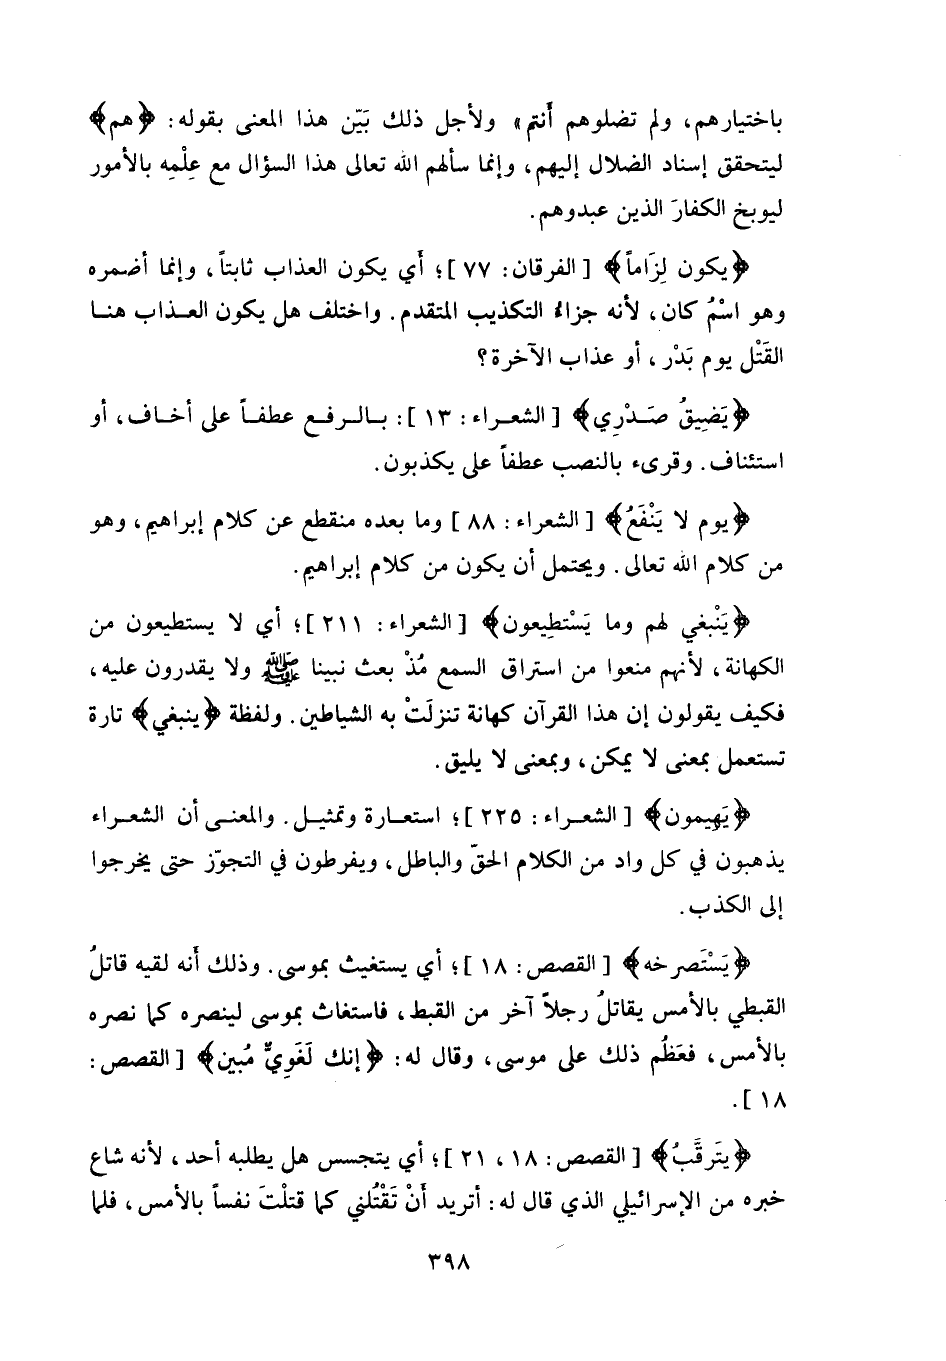 باختيارهم، ولم تضلوهم أَنتم» ولأجل ذلك بَيّن هذا المعنى بقوله: ﴿هم﴾
ليتحقق إسناد الضلال إليهم، وإنما سألهم الله تعالى هذا السؤال مع عِلْمِه بالأمور
ليوبخ الكفارَ الذين عبدوهم.
﴿يكون لِزَاماً﴾ [الفرقان: ٧٧]؛ أَي يكون العذاب ثابتاً، وإنما أضمره
وهو اسْمُ كان، لأنه جزاءُ التكذيب المتقدم. واختلف هل يكون العـذاب هنـا
القَتْل يوم بَدْر، أو عذاب الآخرة؟
﴿يَضِيقُ صَـدْرِي﴾ [الشعـراء: ١٣]: بـالـرفـع عطفـاً على أخـاف، أو
استئناف. وقرىء بالنصب عطفاً على يكذبون.
﴿يوم لا يَنْفَعُ﴾ [الشعراء: ٨٨] وما بعده منقطع عن كلام إبراهيم، وهو
من كلام الله تعالى. ويحتمل أن يكون من كلام إبراهيم.
﴿يَنْبغي لهم وما يَسْتطِيعون﴾ [الشعراء: ٢١١]؛ أي لا يستطيعون من
الكهانة، لأنهم منعوا من استراق السمع مُذْ بعث نبينا ﷺ ولا يقدرون عليه،
فكيف يقولون إن هذا القرآن كهانة تنزلَتْ به الشياطين. ولفظة ﴿ينبغي﴾ تارة
تستعمل بمعنى لا يمكن، وبمعنى لا يليق.
﴿يَهِيمون﴾ [الشعـراء: ٢٢٥]؛ استعـارة وتمثيـل. والمعنـى أن الشعـراء
يذهبون في كل واد من الكلام الحقّ والباطل، ويفرطون في التجوّز حتى يخرجوا
إلى الكذب.
﴿يَسْتَصرخه﴾ [القصص: ١٨]؛ أي يستغيث بموسى. وذلك أَنه لقيه قاتلُ
القبطي بالأمس يقاتلُ رجلاً آخر من القبط، فاستغاث بموسى لينصره كما نصره
بالأمس، فعَظُم ذلك على موسى، وقال له: ﴿إنك لَغَوِيٌّ مُبين﴾ [القصص:
١٨].
﴿يتَرقَّبُ﴾ [القصص: ١٨، ٢١]؛ أي يتجسس هل يطلبه أحد، لأنه شاع
خبره من الإسرائيلي الذي قال له: أتريد أَنْ تَقْتُلني كما قتلْتَ نفساً بالأمس، فلما
٣٩٨